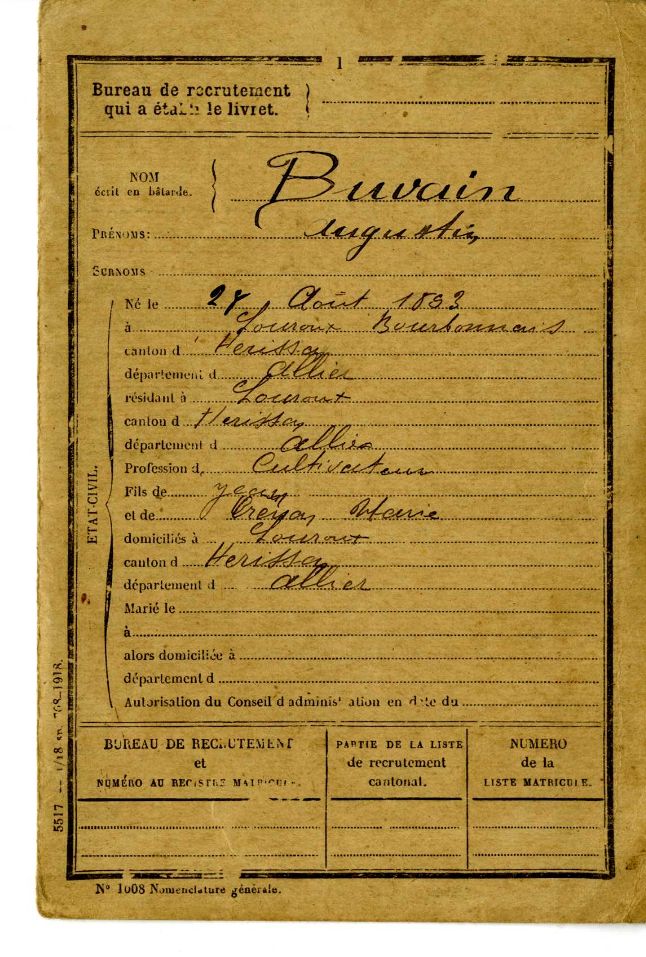 1
Bureau de recrutement
qui a établi le livret.
NOM
écrit en bâtarde.
Buvain
PRÉNOMS: Augustin
SURNOMS
ÉTAT-CIVIL.
Né le Août 1893
à Louroux Bourbonnais
canton d Herisson
département d Allier
résidant à Louroux
canton d Herisson
département d Allier
Profession d Cultivateur
Fils de
et de Marie
domiciliés à Louroux
canton d Herisson
département d Allier
Marié le
à
alors domiciliée à
département d
Autorisation du Conseil d'administration en date du
BUREAU DE RECRUTEMENT
et
NUMÉRO AU REGISTRE MATRICULE.
PARTIE DE LA LISTE
de recrutement
cantonal.
NUMERO
de la
LISTE MATRICULE.
Nº 1008 Nomenclature générale.